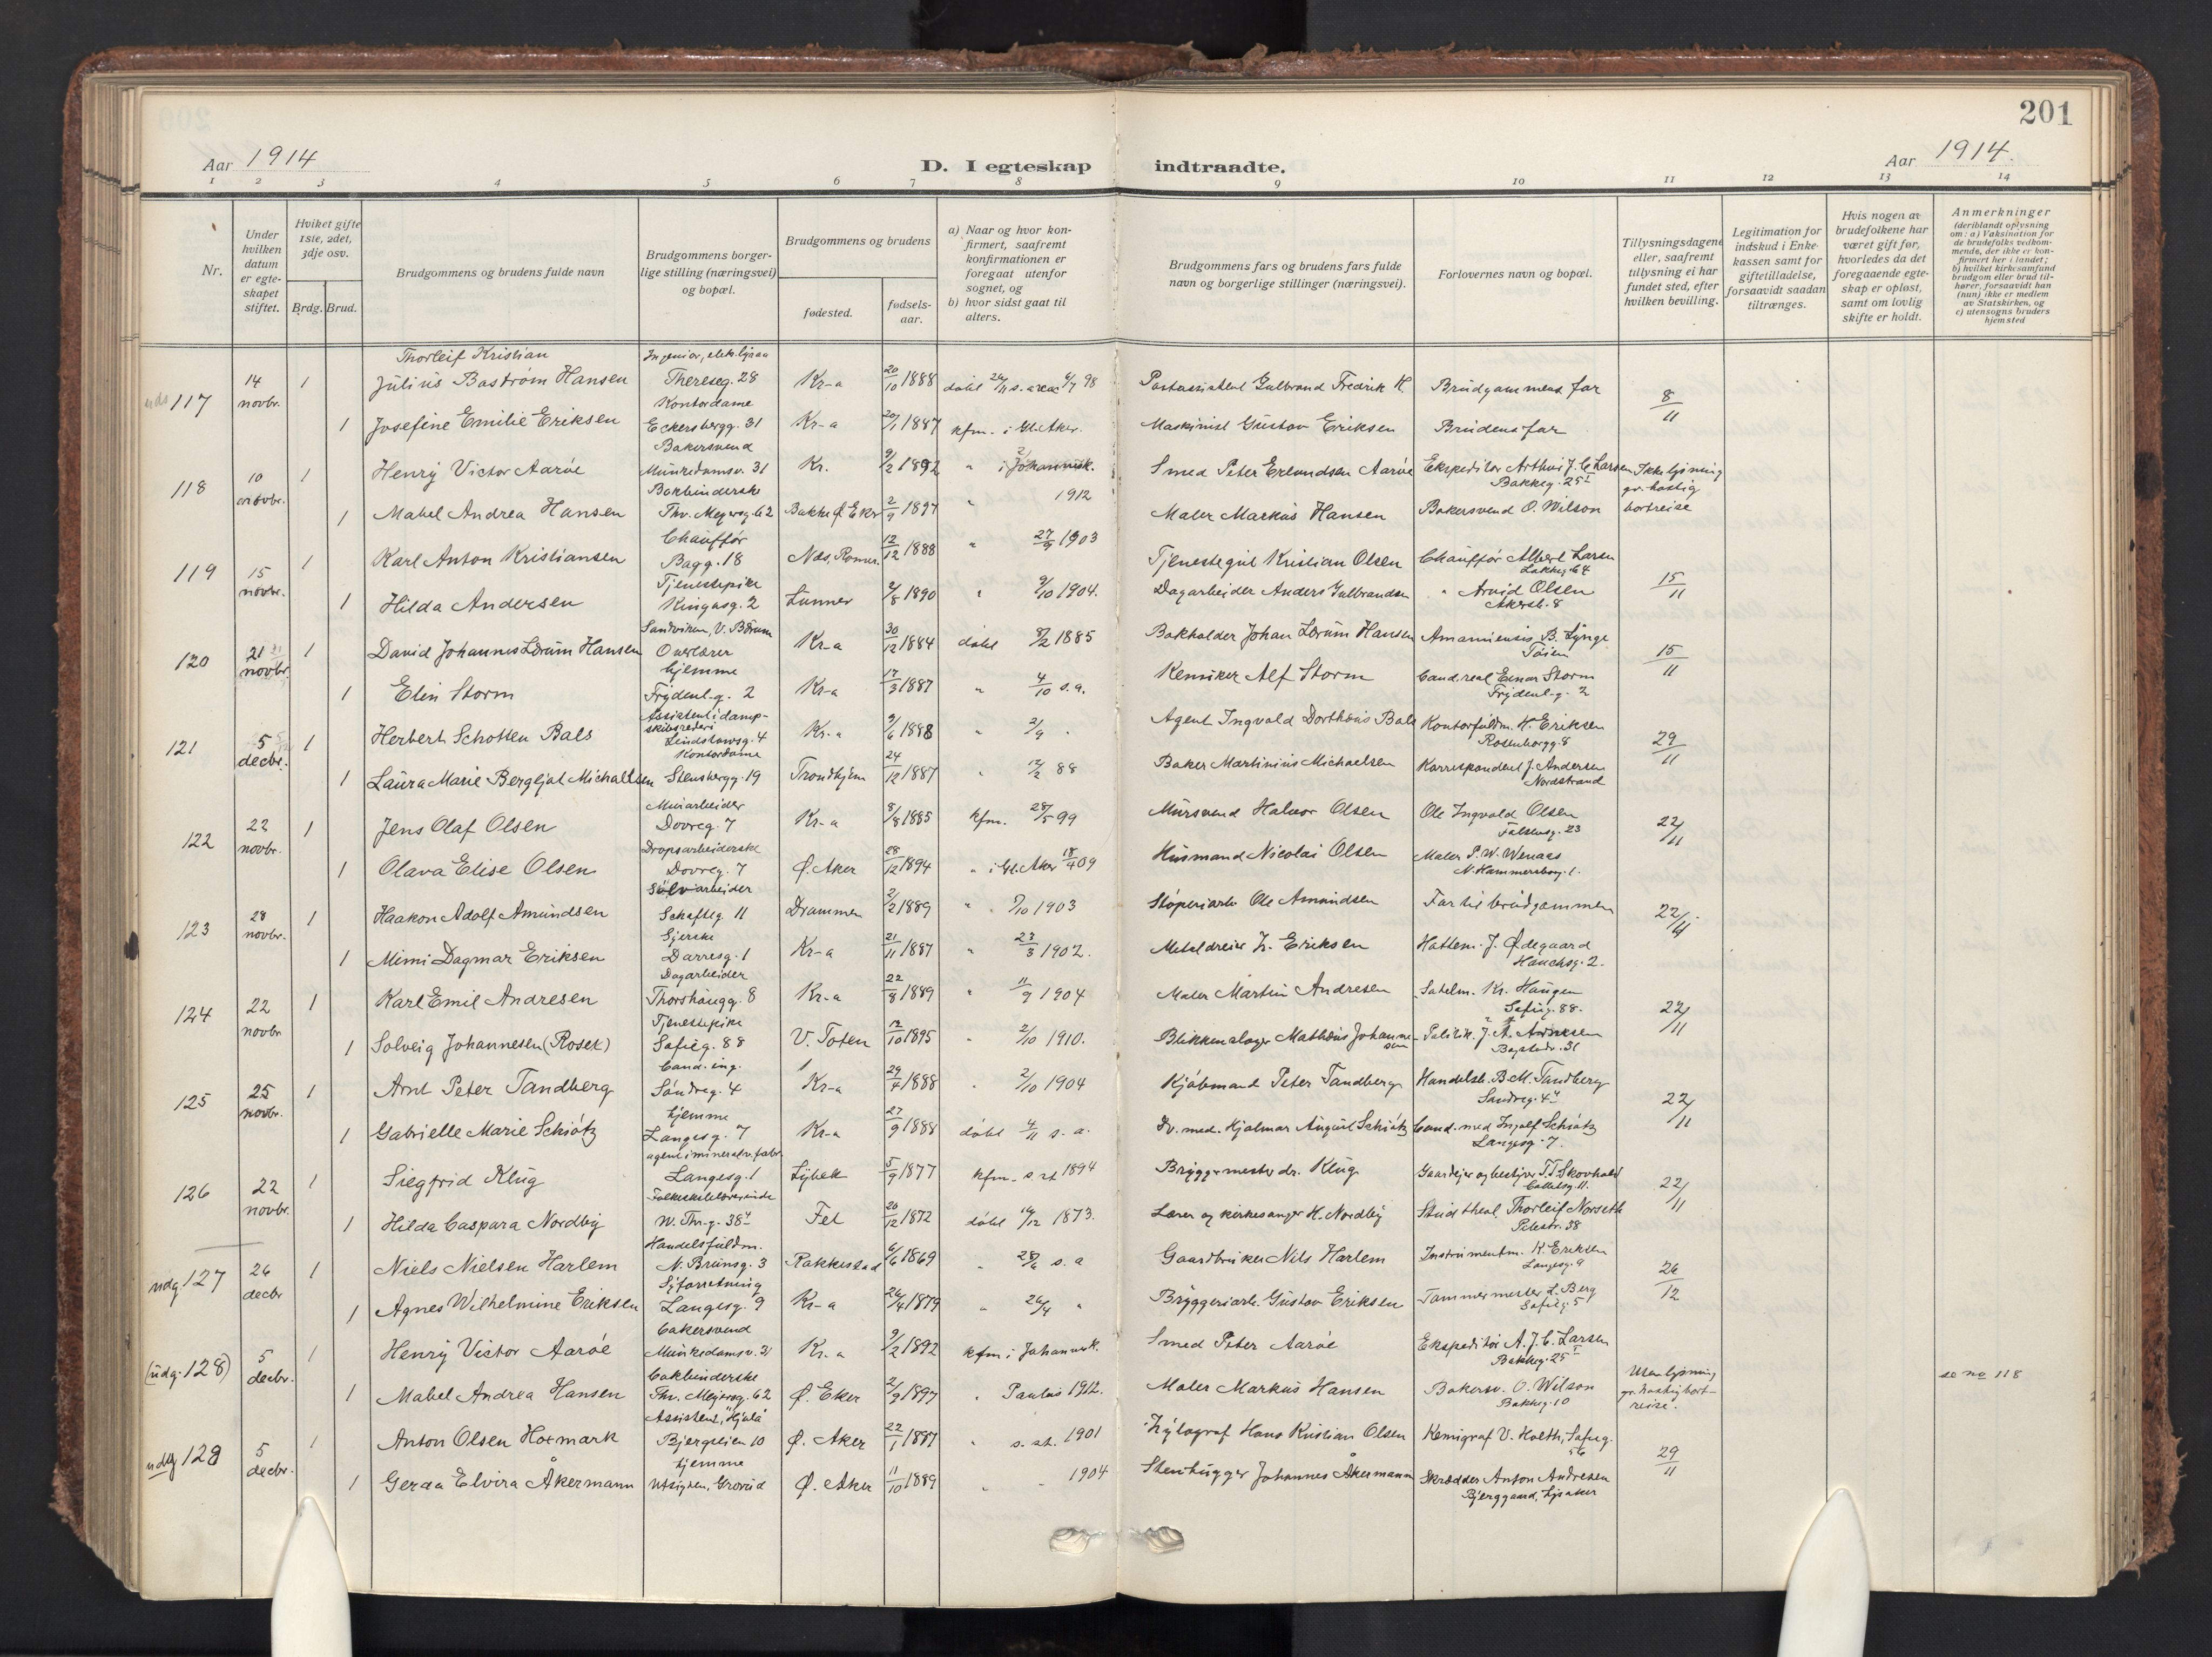 201
Aar 1914
D. I egteskap indtraadte.
Aar 1914.
1 2 3 4 5 6 7 8 9 10 11 12 13 14
Nr.
Under hvilken datum er egteskapet stiftet.
Hviket gifte 1ste, 2det, 3dje osv.
Brdg. Brud.
Brudgommens og brudens fulde navn
Brudgommens borgerlige stilling (næringsvei) og bopæl.
Brudgommens og brudens
fødested.
fødselsaar.
a) Naar og hvor konfirmert, saafremt konfirmationen er foregaat utenfor sognet, og
b) hvor sidst gaat til alters.
Brudgommens fars og brudens fars fulde navn og borgerlige stillinger (næringsvei).
Forlovernes navn og bopæl.
Tillysningsdagene eller, saafremt tillysning ei har fundet sted, efter hvilken bevilling.
Legitimation for indskud i Enkekassen samt for giftetilladelse, forsaavidt saadan tiltrænges.
Hvis nogen av brudefolkene har været gift før, hvorledes da det foregaaende egteskap er opløst, samt om lovlig skifte er holdt.
Anmerkninger
(deriblandt oplysning om: a) Vaksination for de brudefolks vedkommende, der ikke er konfirmert her i landet; b) hvilket kirkesamfund brudgom eller brud tilhører, forsaavidt han (hun) ikke er medlem av Statskirken, og c) utensogns bruders hjemsted
117 14 novbr. 1 Thorleif Kristian Julius Baström Hansen Thereseg. 28 Kr-a 20/10 1888 døbt Gulbrand Fredrik H. Brudgommens far 8/11
1 Josefine Emilie Eriksen Kontordame Eckersbergg. 31 Kr-a 20/1 1887 kfm. i Gl. Aker. Maskinist Gustav Eriksen Brudens far
118 10 novbr. 1 Henry Victor Aarøe Bakersvend Munkedamsv. 31 Kr. 9/2 1892 " i Johannesk. Smed Peter Erlandsen Aarøe Ekspeditør Arthur J. C. Larsen Bakkeg. 25 I Ikke lysning gr. hastig bortreise
1 Mabel Andrea Hansen Bokbinderske Thv. Meyersg. 62 Bakke Ø. Eker 2/9 1897 " 1912 Maler Markus Hansen Bakersvend O. Wilson
119 15 novbr. 1 Karl Anton Kristiansen Chauffør Bagg. 18 Nes, Romer. 12/12 1888 " 27/9 1903 Tjenestegut Kristian Olsen Chauffør Albert Larsen Lakkeg. 64 15/11
1 Hilda Andersen Tjenestepike Kingosg. 2 Lunner 2/8 1890 " 9/10 1904. Dagarbeider Anders Gulbrandsen " Arvid Olsen Akersb. 8
120 21 novbr. 1 David Johannes Lørum Hansen Sandviken, V. Bærum Overlærer Kr-a 30/12 1884 døbt 8/2 1885 Bokholder Johan Lørum Hansen Amanuensis B. Lynge Tøien 15/11
1 Elin Storm hjemme Frydenl.g. 2 Kr-a 17/3 1887 " 4/10 s.a. Kemiker Alf Storm Cand. real Einar Storm Frydenl.g. 2
121 5 decbr. 1 Herbert Schotten Bals Assistent i dampskibsrederi Lindstowsg. 4 Kr-a 9/6 1888 " 2/9 " Agent Ingvald Dorthæus Bals Kontorfuldm. H. Eriksen Rosenborgg. 8 29/11
1 Laura Marie Bergljot Michaelsen Kontordame Stensbergg. 19 Trondhjem 24/12 1887 " 12/2 88 Baker Martinius Michaelsen Korrespondent J. Andersen Nordstrand
122 22 novbr. 1 Jens Olaf Olsen Murarbeider Dovreg. 7 Kr-a 8/8 1885 kfm. 28/5 99 Mursvend Halvor Olsen Ole Ingvald Olsen Falsensg. 23 22/11
1 Olava Elise Olsen Dropsarbeiderske Dovreg. 7 Ø. Aker 28/12 1894 " i Gl. Aker 18/4 09 Husmand Nicolai Olsen Maler P. W. Wenaas N. Hammersborg. 1.
123 28 novbr. 1 Haakon Adolf Amundsen Sølvarbeider Schafteg. 11 Drammen 2/2 1889 " 7/10 1903 Støperiarb. Ole Amundsen Far til brudgommen 22/11
1 Mimi Dagmar Eriksen Syerske Darresg. 1 Kr-a 21/11 1887 " 23/3 1902. Metaldreier H. Eriksen Hattem. J. Ødegaard Hauchsg. 2.
124 22 novbr. 1 Karl Emil Andresen Dagarbeider Thorshaugg. 8 Kr-a 22/8 1889 " 11/9 1904 Maler Martin Andresen Sadelm. Kr. Haugen Sofieg. 88. 22/11
1 Solveig Johannesen (Rosek) Tjenestepike Sofieg. 88 V. Toten 12/10 1895 " 2/10 1910. Blikkenslager Mathæus Johannesen Politik. J. A. Arnesen Bogstadv. 31
125 25 novbr. 1 Arnt Peter Tandberg Cand. ing. Søndreg. 4 Kr-a 29/4 1888 " 2/10 1904 Kjøbmand Peter Tandberg Handelsb. B. M. Tandberg Søndreg. 4 22/11
1 Gabrielle Marie Schiøtz hjemme Langesg. 7 Kr-a 27/9 1888 døbt 4/11 s. a. Dr. med. Hjalmar August Schiøtz Cand. med Ingolf Schiøtz Langesg. 7.
126 22 novbr. 1 Siegfrid Klug agent i mineralv.fabr. Langesg. 1 Lybek 5/9 1877 kfm. s st 1894 Bryggermester dr. Klug Gaardeier og bestyrer T. T. Skovhold Colletsg. 11. 22/11
1 Hilda Caspara Nordby Folkeskolelærerinde W. Thr.g. 38 Fet 20/12 1872 døbt 14/12 1873. Lærer og kirkesanger H. Nordby Stud theol. Thorleif Norseth Pilestr. 38
udg. 127 26 decbr 1 Niels Nielsen Harlem Handelsfuldm. N. Brunsg. 3 Rakkestad 6/6 1869 " s. a Gaardbruker Nils Harlem Instrumentm. K. Eriksen Langesg. 9 26/12
1 Agnes Wilhelmine Eriksen Syforretning Langesg. 9 Kr-a 26/4 1879 " 26/4 " Bryggeriarb. Gustav Eriksen Tømmermester L. Berg Sofieg. 5
(udg. 128) 5 decbr. 1 Henry Victor Aarøe bakersvend Munkedamsv. 31 Kr-a 9/2 1892 kfm i Johannesk. Smed Peter Aarøe Ekspeditør A. J. C. Larsen Bakkeg. 25 I Uten lysning gr. hastig bortreise. se no 118
1 Mabel Andrea Hansen bokbinderske Thv. Meyersg. 62 Ø. Eker 2/9 1897 " Paulus 1912. Maler Markus Hansen Bakersv. O. Wilson Bakkeg. 10
udg 129 5 decbr. 1 Anton Olsen Hoxmark Assistent, "Hjula" Bjergslien 10 Ø. Aker 22/1 1887 " s. st. 1901 Xylograf Hans Kristian Olsen Kemigraf V. Holth, Sofieg. 56 29/11
1 Gerda Elvira Åkermann hjemme Utsigten, Grorud Ø. Aker 11/10 1889 " " 1904 Stenhugger Johannes Åkermann Skrædder Anton Andresen Bjerggaard, Lysaker